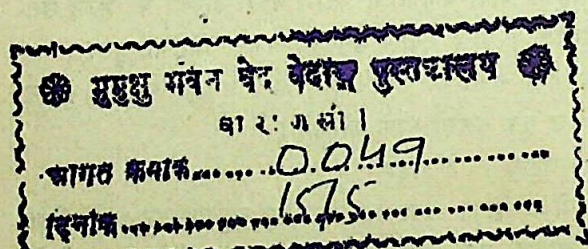 मुमुक्षु भवन वेद वेदाङ्ग पुस्तकालय
वाराणसी।
आगत क्रमांक............0049............
दिनांक............15/5............